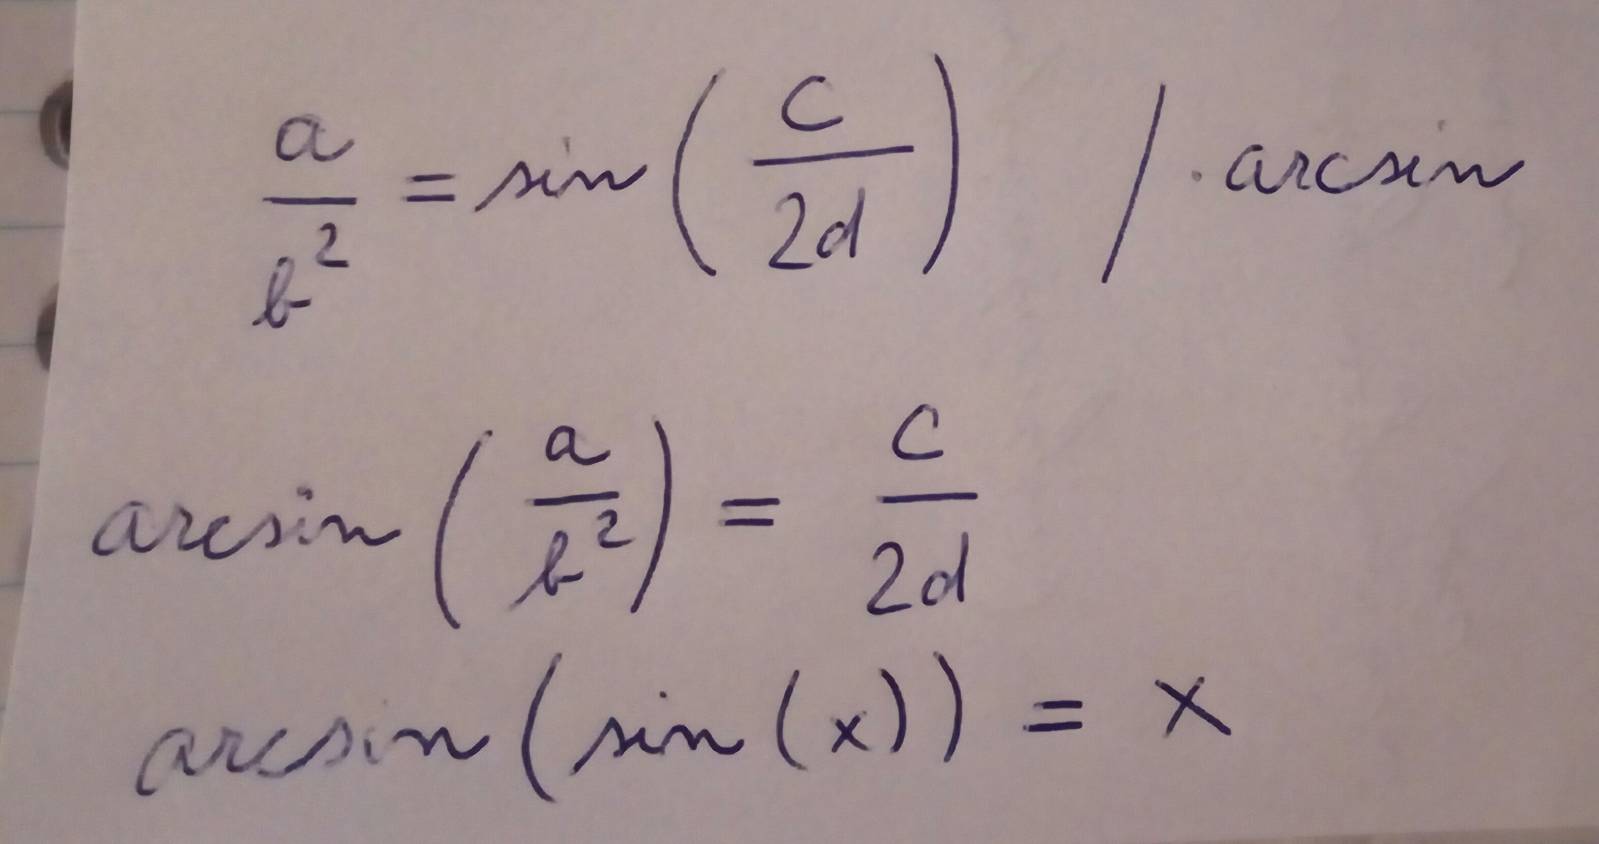 a/b² = sin(c/2d) / · arcsin
arcsin(a/b²) = c/2d
arcsin(sin(x)) = x